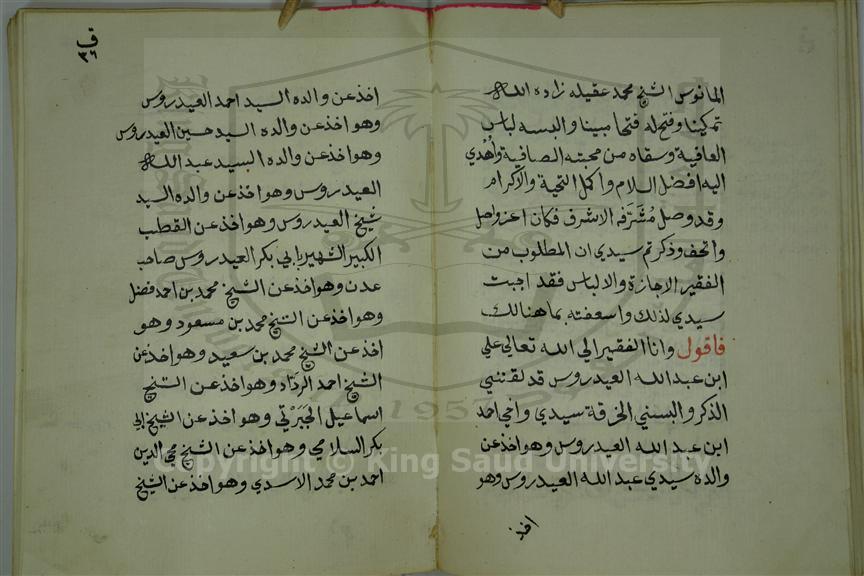 المانوس الشيخ محمد عقيله زاده الله
تمكينا وفتح له فتحا مبينا والبسه لباس
العافية وسقاه من محبته الصافية واهدي
اليه افضل السلام واكمل التحية والاكرام
وقد وصل مُشَرَفه الاشرف فكان اعز واصل
واتحف وذكرتم سيدي ان المطلوب من
الفقير الاجازة والالباس فقد اجبت
سيدي لذلك واسعفته بما هنالك
فاقول وانا الفقير الى الله تعالى علي
ابن عبد الله العيدروس قد لقنني
الذكر والبسني الخرقة سيدي واخي احمد
ابن عبد الله العيدروس وهو اخذ عن
والده سيدي عبد الله العيدروس وهو
اخذ
اخذ عن والده السيد احمد العيدروس
وهو اخذ عن والده السيد حسين العيدروس
وهو اخذ عن والده السيد عبد الله
العيدروس وهو اخذ عن والده السيد
شيخ العيدروس وهو اخذ عن القطب
الكبير الشهير بابي بكر العيدروس صاحب
عدن وهو اخذ عن الشيخ محمد بن احمد فضل
وهو اخذ عن الشيخ محمد بن مسعود وهو
اخذ عن الشيخ محمد بن سعيد وهو اخذ عن
الشيخ احمد الردّاد وهو اخذ عن الشيخ
اسماعيل الجَبَرْتي وهو اخذ عن الشيخ ابي
بكر السلامي وهو اخذ عن الشيخ محي الدين
احمد بن محمد الاسدي وهو اخذ عن الشيخ
1957
Copyright © King Saud University